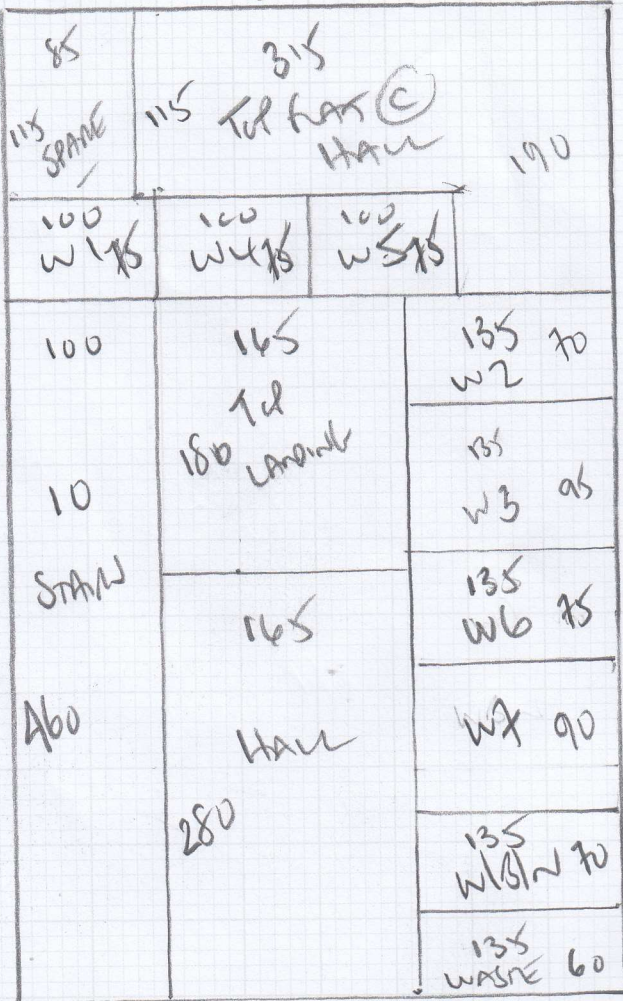 85
115
SPARE
315
115 TOP FLAT C
HALL
190
100
W1 75
100
W4 75
100
W5 75
100
10
STAIR
460
165
TOP
180 LANDING
165
HALL
280
135 70
W2
135
W3 95
135
W6 75
W7 90
135
70
135
WASTE 60